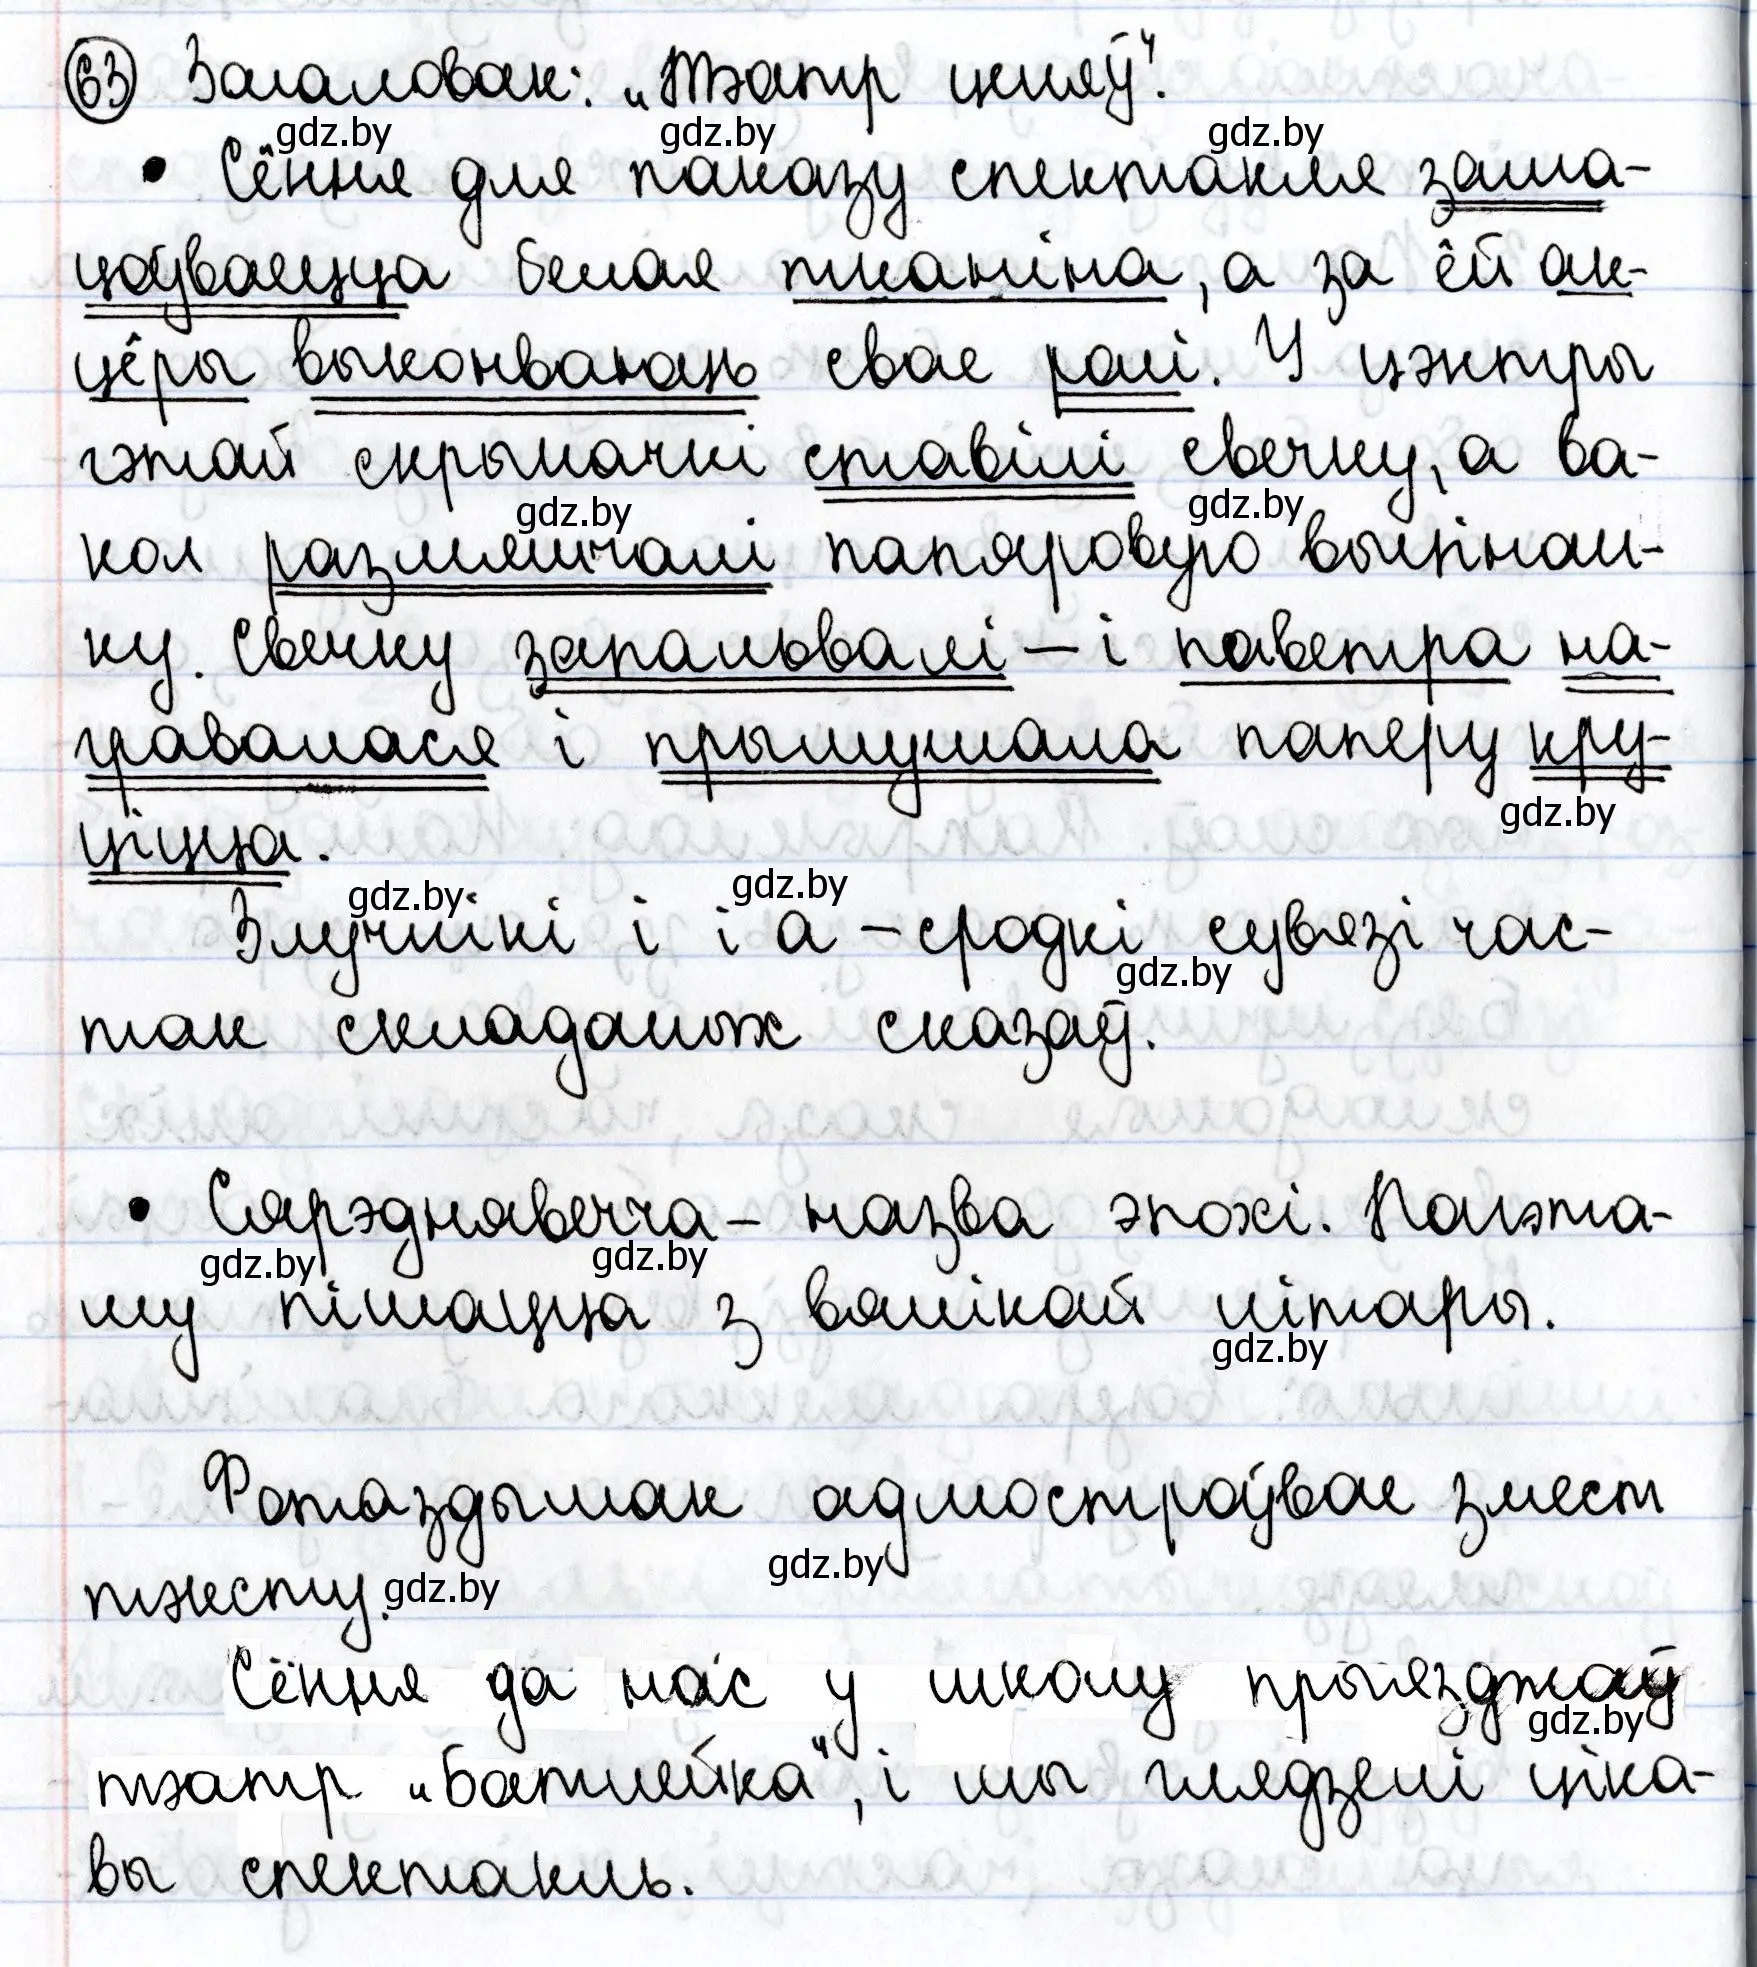 63 Загаловак: „Тэатр ценяў".
gdz.by gdz.by gdz.by
• Сёння для паказу спектакля заша-
цоўваецца белая тканіна, а за ёй ак-
цёры выконваюць свае ролі. У цэнтры
гэтай скрыначкі ставілі свечку, а ва-
gdz.by gdz.by
кол размяшчалі папяровую выцінан-
ку. Свечку запальвалі – і паветра на-
гравалася і прымушала паперу кру-
gdz.by
ціцца.
gdz.by gdz.by
Злучнікі і і а – сродкі сувязі час-
gdz.by
так складаных сказаў.
• Сярэднявечча – назва эпохі. Палэта-
gdz.by gdz.by
му пішацца з вялікай літары.
gdz.by
Фотаздымак адмостроўвае змест
gdz.by
тэксту.
gdz.by
Сёння да нас у школу прыязджаў
gdz.by
тэатр „Батлейка", і мы глядзелі ціка-
вы спектакль.